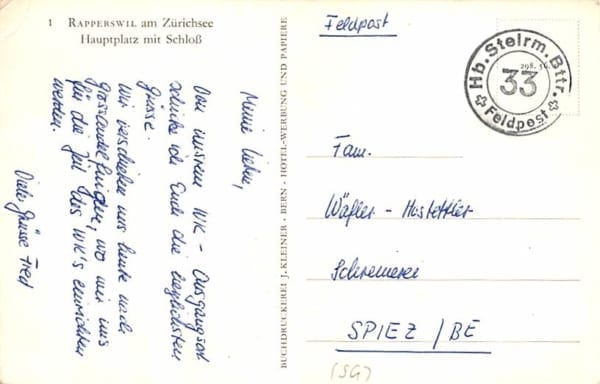 1 RAPPERSWIL am Zürichsee
Hauptplatz mit Schloß
Meine Lieben,
Von unserem WK - Ausgangsort
schicke ich Euch die herzlichsten
Grüsse.
Wir verschieben uns heute nach
Grossandelfingen, wo wir uns
für die Zeit des WK's einrichten
werden.
Viele Grüsse Fred
BUCHDRUCKEREI J. KLEINER - BERN - HOTEL-WERBUNG UND PAPIERE
Feldpost
Hb. Steirm. Bttr.
298.
33
Feldpost
Fam.
Wäfler - Hostettler
Schreinerei
SPIEZ / BE
(SG)